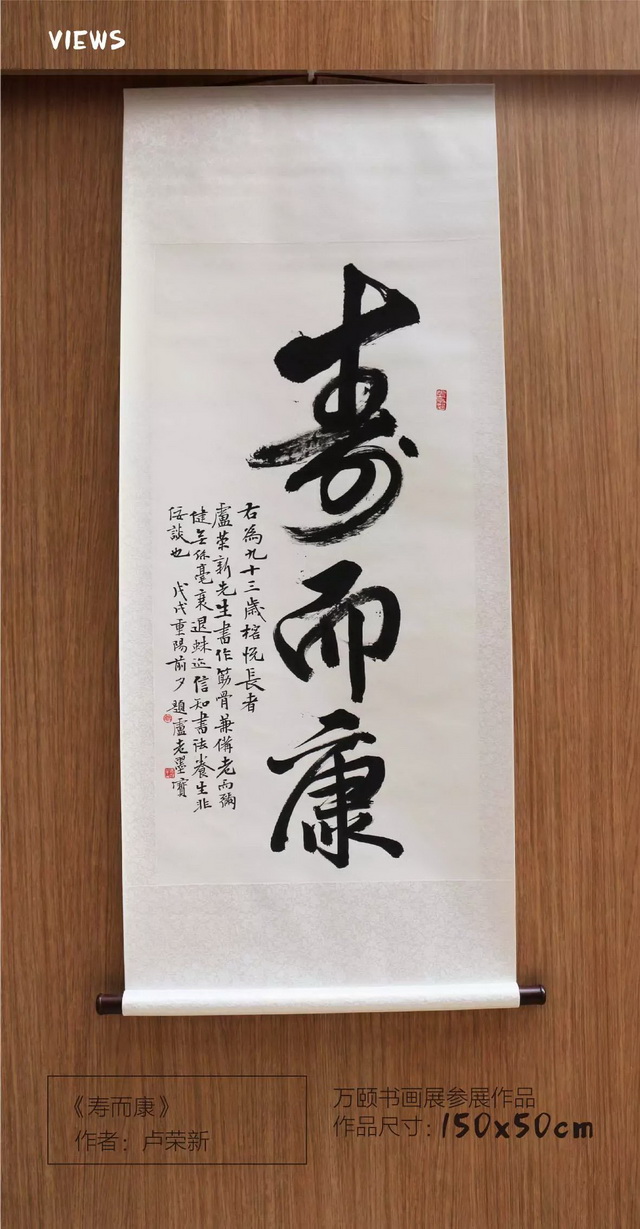 VIEWS
寿而康
右為九十三歲榕悦長者
盧榮新先生書作筋骨兼備老而彌
健無絲毫衰退蛛迹信知書法養生非
佞談也 戊戌重陽前夕 題盧老墨寶
《寿而康》
作者：卢荣新
万颐书画展参展作品
作品尺寸：150x50cm